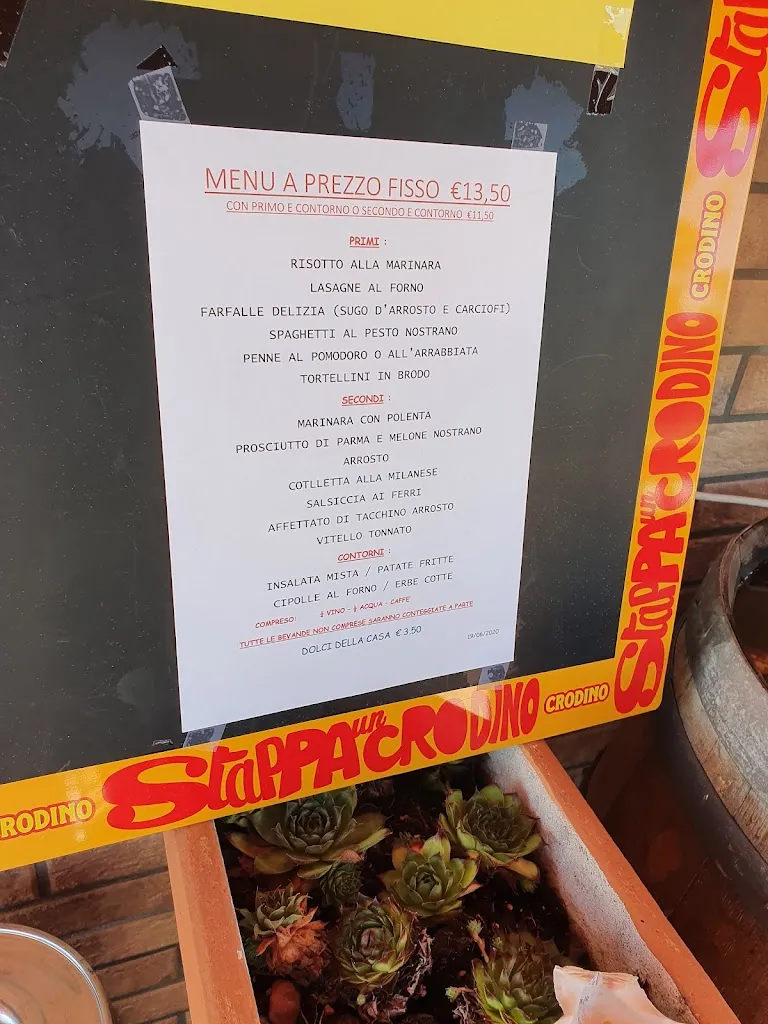 MENU A PREZZO FISSO €13,50
CON PRIMO E CONTORNO O SECONDO E CONTORNO €11,50
PRIMI :
RISOTTO ALLA MARINARA
LASAGNE AL FORNO
FARFALLE DELIZIA (SUGO D'ARROSTO E CARCIOFI)
SPAGHETTI AL PESTO NOSTRANO
PENNE AL POMODORO O ALL'ARRABBIATA
TORTELLINI IN BRODO
SECONDI :
MARINARA CON POLENTA
PROSCIUTTO DI PARMA E MELONE NOSTRANO
ARROSTO
COTLLETTA ALLA MILANESE
SALSICCIA AI FERRI
AFFETTATO DI TACCHINO ARROSTO
VITELLO TONNATO
CONTORNI :
INSALATA MISTA / PATATE FRITTE
CIPOLLE AL FORNO / ERBE COTTE
COMPRESO: ¼ VINO - ½ ACQUA - CAFFE'
TUTTE LE BEVANDE NON COMPRESE SARANNO CONTEGGIATE A PARTE
DOLCI DELLA CASA € 3,50 19/06/2020
Sta
CRODINO
StaPPA un CRODINO
RODINO StaPPA un CRODINO CRODINO